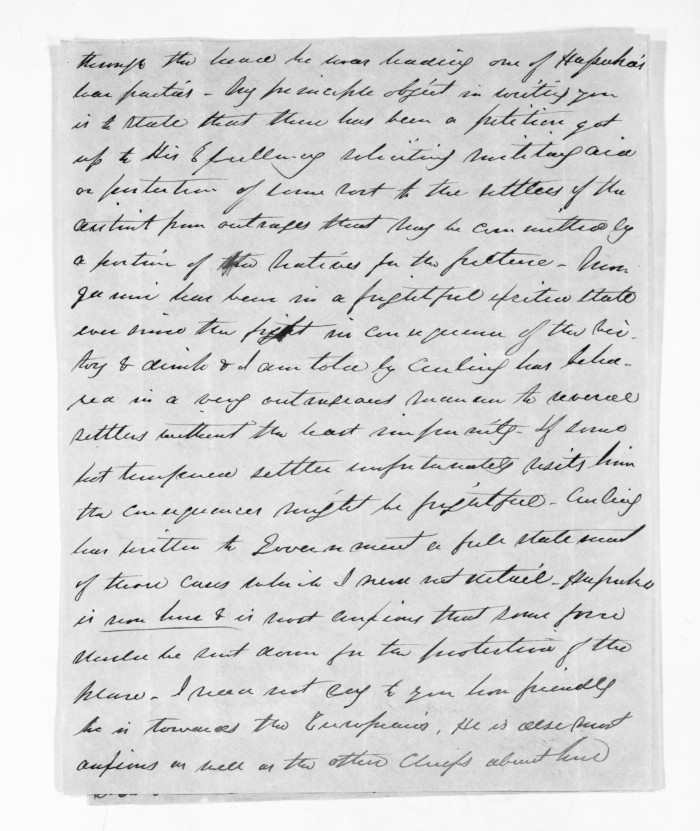 through the head he was leading one of Hapuka's
war parties – My principle object in writing you
is to state that there has been a petition got
up to His Excellency soliciting military aid
or protection of some sort to the settlers of the
district from outrages that may be committed by
a portion of the Natives for the future –
has been in a frightful excited state
ever since the fight in consequence of the vic-
tory & drink & I am told by Curling has beha-
ved in a very outrageous manner to several
settlers without the least impunity – If some
hot tempered settler unfortunately visits him
the consequences might be frightful – Curling
has written to Government a full statement
of those cases which I need not detail – Hapuka
is now here & is most anxious that some force
be sent down for the protection of the
place – I need not say to you how friendly
he is towards the Europeans. He is also most
anxious as well as the other Chiefs about here